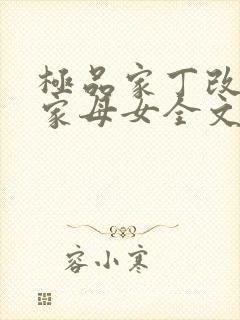 極品家丁改
家母女全文
容小寒